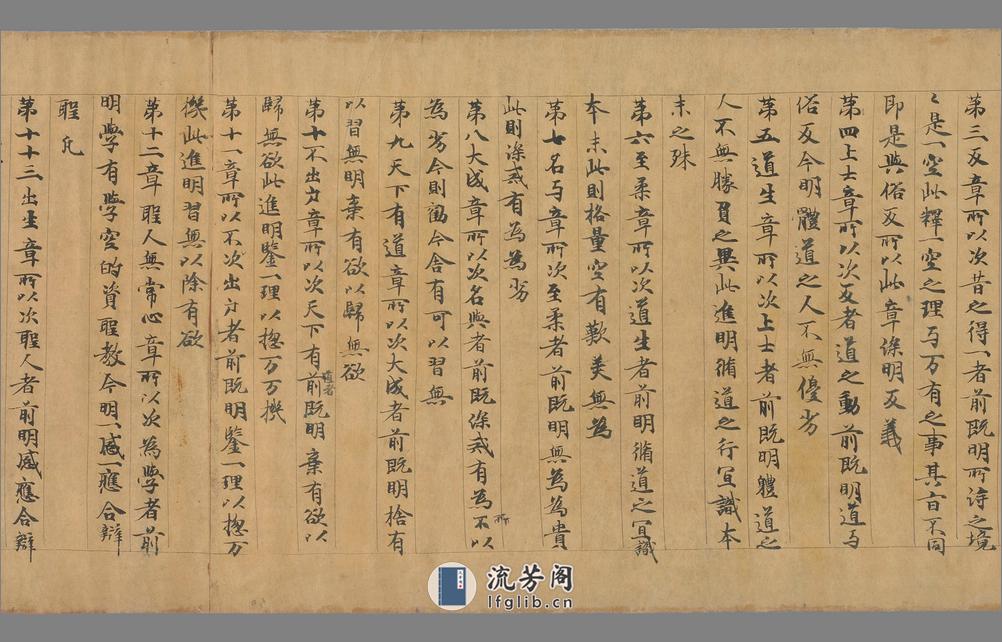 第三反章所以次昔之得一者前既明所詩之境
〻是一空此釋一空之理与万有之事其旨不同
即是與俗反所以此章次明反義
第四上士章所以次反者道之動前既明道与
俗反今明體道之人不無優劣
第五道生章所以次上士者前既明體道之
人不無勝負之異此進明脩道之行冝識本
末之殊
第六至柔章所以次道生者前明脩道之冝識
本末此則格量空有歎美無為
第七名与章所次至柔者前既明無為為貴
此則深戒有為為劣
第八大成章所以次名與者前既深戒有為不以
為劣今則勸令舍有可以習無
第九天下有道章所以次大成者前既明捨有
以習無明棄有欲以歸無欲
第十不出户章所以次天下有道者前既明棄有欲以
歸無欲此進明鑒一理以揔万万機
第十一章所以不次出户者前既明鑒一理以揔万
機此進明習無以除有欲
第十二章聖人無常心章所以次為學者前
明學有學空的資聖教今明一感一應合辯
聖凡
第十十三出生章所以次聖人者前明感應合辯
流芳阁
lfglib.cn